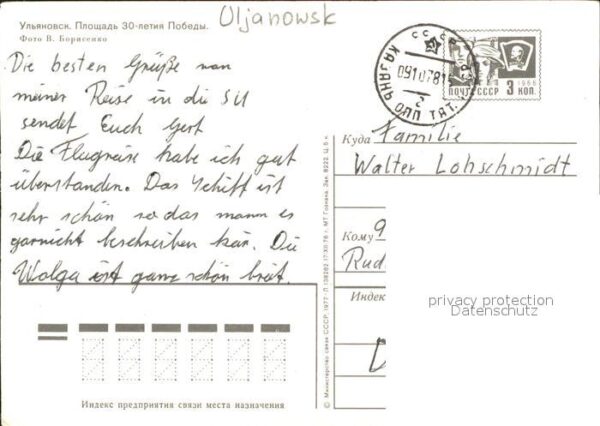 Uljanowsk
Ульяновск. Площадь 30-летия Победы.
Фото В. Борисенко
Die besten Grüße von
meiner Reise in die SU
sendet Euch Gert
Die Flugreise habe ich gut
überstanden. Das Schiff ist
sehr schön so das mann es
garnicht beschreiben kan. Die
Wolga ist ganz schön breit.
СССР
КАЗАНЬ ОПП ТАТ.
091078
2
1966
ПОЧТА СССР 3 КОП.
Куда Familie
Walter Lohschmidt
Кому 9
Rud
Индекс
privacy protection
Datenschutz
© Министерство связи СССР. 1977
МТ Гознака. Зак. 8222. Ц. 5 к.
Индекс предприятия связи места назначения